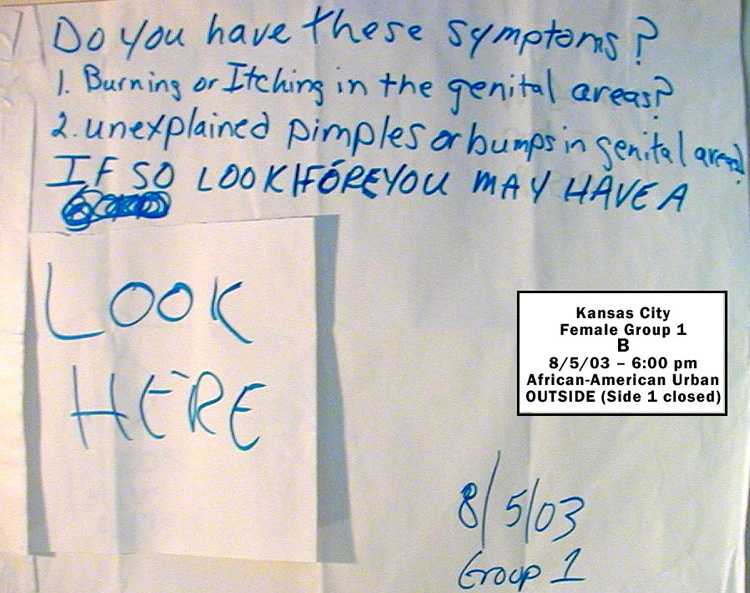 Do you have these symptoms?
1. Burning or Itching in the genital areas?
2. unexplained pimples or bumps in genital areas?
IF SO LOOK HERE YOU MAY HAVE A
LOOK
HERE
Kansas City
Female Group 1
B
8/5/03 – 6:00 pm
African-American Urban
OUTSIDE (Side 1 closed)
8/5/03
Group 1